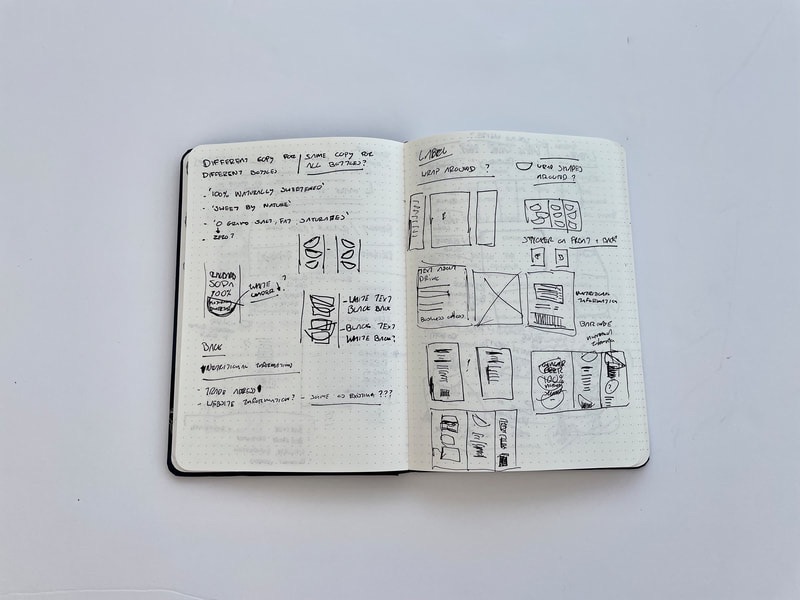 DIFFERENT COPY FOR
DIFFERENT BOTTLES
SAME COPY FOR
ALL BOTTLES?
- '100% NATURALLY SWEETENED'
- 'SWEET BY NATURE'
- '0 GRAMS SALT, FAT, SATURATES'
- ZERO?
SODA
100%
WHITE
?
- WHITE TEXT
BLACK BACK
- BLACK TEXT
WHITE BACK?
BACK
NUTRITIONAL INFORMATION
- TRADE
- WEBSITE INFORMATION? - SAME AS EXISTING???
LABEL
WRAP AROUND ?
WRAP SHAPES
AROUND?
STICKER ON FRONT + BACK?
F
B
TEXT ABOUT
DRINK
BUSINESS
NUTRITIONAL
INFORMATION
BARCODE
GINGER
BEER
100%